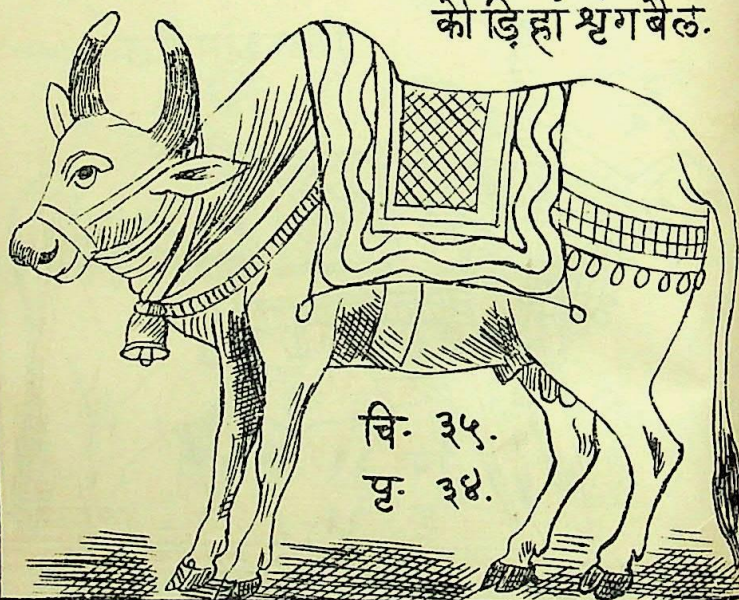 कौड़िहाँ शृग बैल.
चि. ३५.
पृ. ३४.